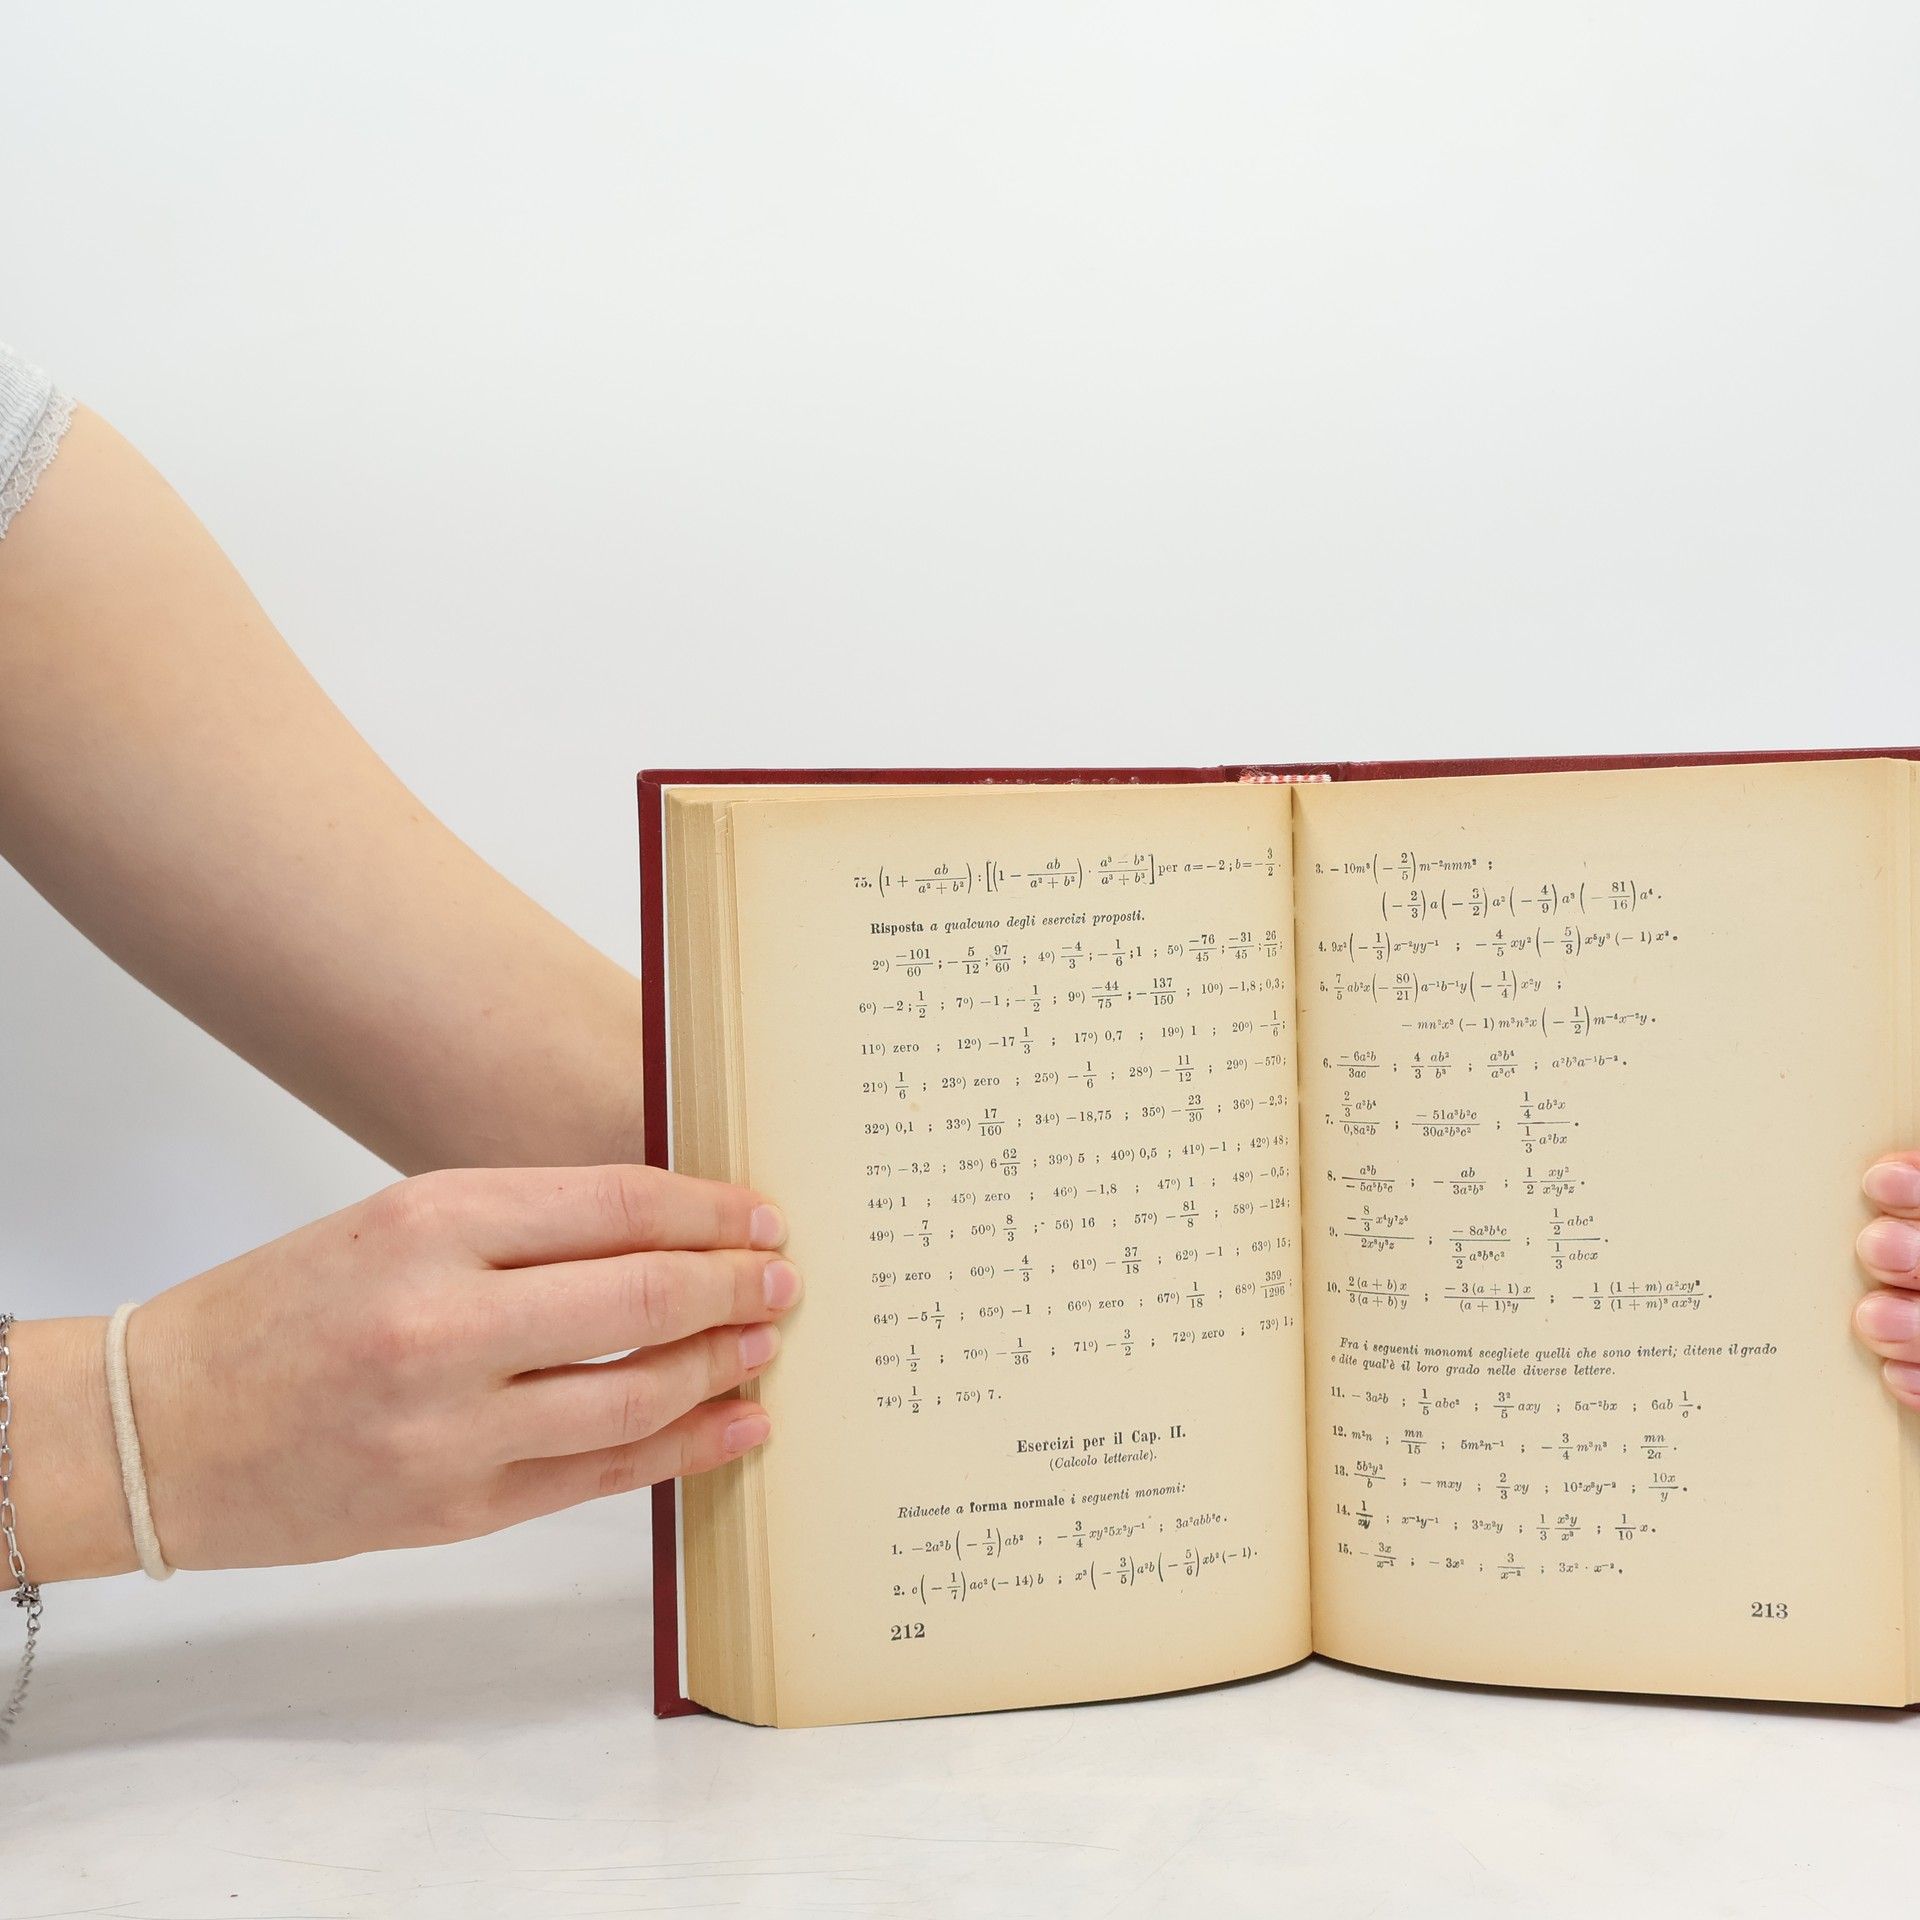 75. (1 + ab/(a² + b²)) : [(1 − ab/(a² + b²)) · (a³ − b³)/(a³ + b³)] per a = −2 ; b = −3/2.
Risposta a qualcuno degli esercizi proposti.
2º) −101/60 ; −5/12 ; 97/60 ; 4º) −4/3 ; −1/6 ; 1 ; 5º) −76/45 ; −31/45 ; 26/15 ;
6º) −2 ; 1/2 ; 7º) −1 ; −1/2 ; 9º) −44/75 ; −137/150 ; 10º) −1,8 ; 0,3 ;
11º) zero ; 12º) −17 1/3 ; 17º) 0,7 ; 19º) 1 ; 20º) −1/6 ;
21º) 1/6 ; 23º) zero ; 25º) −1/6 ; 28º) −11/12 ; 29º) −570 ;
32º) 0,1 ; 33º) 17/160 ; 34º) −18,75 ; 35º) −23/30 ; 36º) −2,3 ;
37º) −3,2 ; 38º) 6 62/63 ; 39º) 5 ; 40º) 0,5 ; 41º) −1 ; 42º) 48 ;
44º) 1 ; 45º) zero ; 46º) −1,8 ; 47º) 1 ; 48º) −0,5 ;
49º) −7/3 ; 50º) 8/3 ; 56) 16 ; 57º) −81/8 ; 58º) −124 ;
59º) zero ; 60º) −4/3 ; 61º) −37/18 ; 62º) −1 ; 63º) 15 ;
64º) −5 1/7 ; 65º) −1 ; 66º) zero ; 67º) 1/18 ; 68º) 359/1296 ;
69º) 1/2 ; 70º) −1/36 ; 71º) −3/2 ; 72º) zero ; 73º) 1 ;
74º) 1/2 ; 75º) 7.
Esercizi per il Cap. II.
(Calcolo letterale).
Riducete a forma normale i seguenti monomi:
1. −2a²b (−1/2) ab² ; −3/4 xy²5x²y⁻¹ ; 3a²abb²c.
2. c (−1/7) ac² (−14) b ; x³ (−3/5) a²b (−5/6) xb² (−1).
212
3. −10m³ (−2/5) m⁻²nmn² ;
(−2/3) a (−3/2) a² (−4/9) a³ (−81/16) a⁴.
4. 9x² (−1/3) x⁻²yy⁻¹ ; −4/5 xy² (−5/3) x⁵y³ (−1) x².
5. 7/5 ab²x (−80/21) a⁻¹b⁻¹y (−1/4) x²y ;
− mn²x³ (−1) m³n²x (−1/2) m⁻⁴x⁻²y.
6. −6a²b/3ac ; 4/3 ab²/b³ ; a³b⁴/a³c⁴ ; a²b³a⁻¹b⁻².
7. 2/3 a³b⁴/0,8a²b ; −51a³b²c/30a²b³c² ; 1/4 ab²x / 1/3 a²bx.
8. a³b/−5a⁵b²c ; −ab/3a²b³ ; 1/2 xy²/x²y³z.
9. −8/3 x⁴y⁷z⁵/2x³y³z ; −8a³b⁴c / 3/2 a³b³c² ; 1/2 abc² / 1/3 abcx.
10. 2 (a + b) x/3 (a + b) y ; −3 (a + 1) x/(a + 1)²y ; −1/2 (1 + m) a²xy³/(1 + m)³ ax³y.
Fra i seguenti monomi scegliete quelli che sono interi; ditene il grado
e dite qual'è il loro grado nelle diverse lettere.
11. −3a²b ; 1/5 abc² ; 3²/5 axy ; 5a⁻²bx ; 6ab 1/c.
12. m²n ; mn/15 ; 5m²n⁻¹ ; −3/4 m³n³ ; mn/2a.
13. 5b²y²/b ; −mxy ; 2/3 xy ; 10²x³y⁻² ; 10x/y.
14. 1/xy ; x⁻¹y⁻¹ ; 3²x²y ; 1/3 x³y/x³ ; 1/10 x.
15. −3x/x⁻¹ ; −3x² ; 3/x⁻² ; 3x² · x⁻².
213